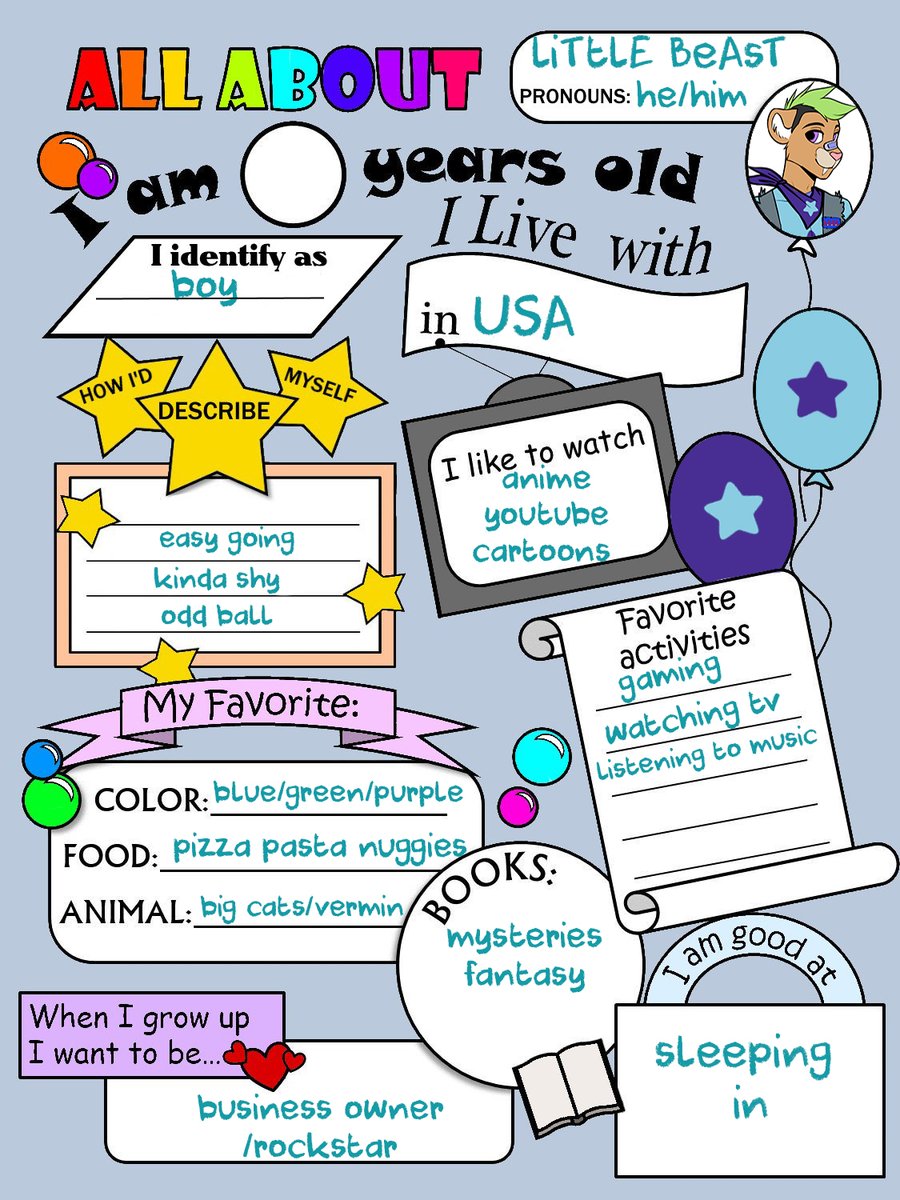 ALL ABOUT
LiTTLE BeAST
PRONOUNS: he/him
I am years old
I Live with
in USA
I identify as
boy
HOW I'D
DESCRIBE
MYSELF
easy going
kinda shy
odd ball
I like to watch
anime
youtube
cartoons
Favorite
activities
gaming
watching tv
listening to music
My Favorite:
COLOR: blue/green/purple
FOOD: pizza pasta nuggies
ANIMAL: big cats/vermin
BOOKS:
mysteries
fantasy
I am good at
sleeping
in
When I grow up
I want to be...
business owner
/rockstar